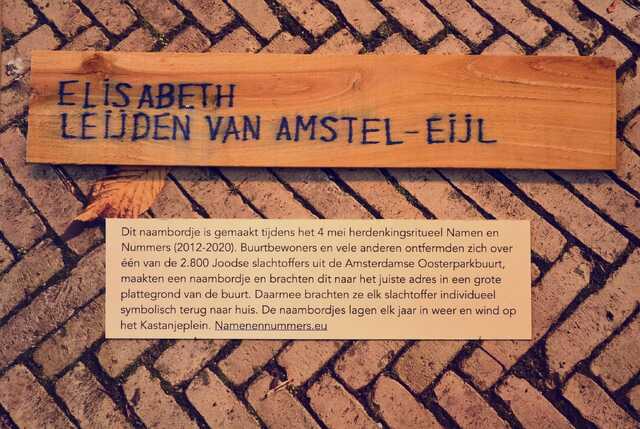 ELISABETH
LEIJDEN VAN AMSTEL-EIJL
Dit naambordje is gemaakt tijdens het 4 mei herdenkingsritueel Namen en
Nummers (2012-2020). Buurtbewoners en vele anderen ontfermden zich over
één van de 2.800 Joodse slachtoffers uit de Amsterdamse Oosterparkbuurt,
maakten een naambordje en brachten dit naar het juiste adres in een grote
plattegrond van de buurt. Daarmee brachten ze elk slachtoffer individueel
symbolisch terug naar huis. De naambordjes lagen elk jaar in weer en wind op
het Kastanjeplein. Namenennummers.eu